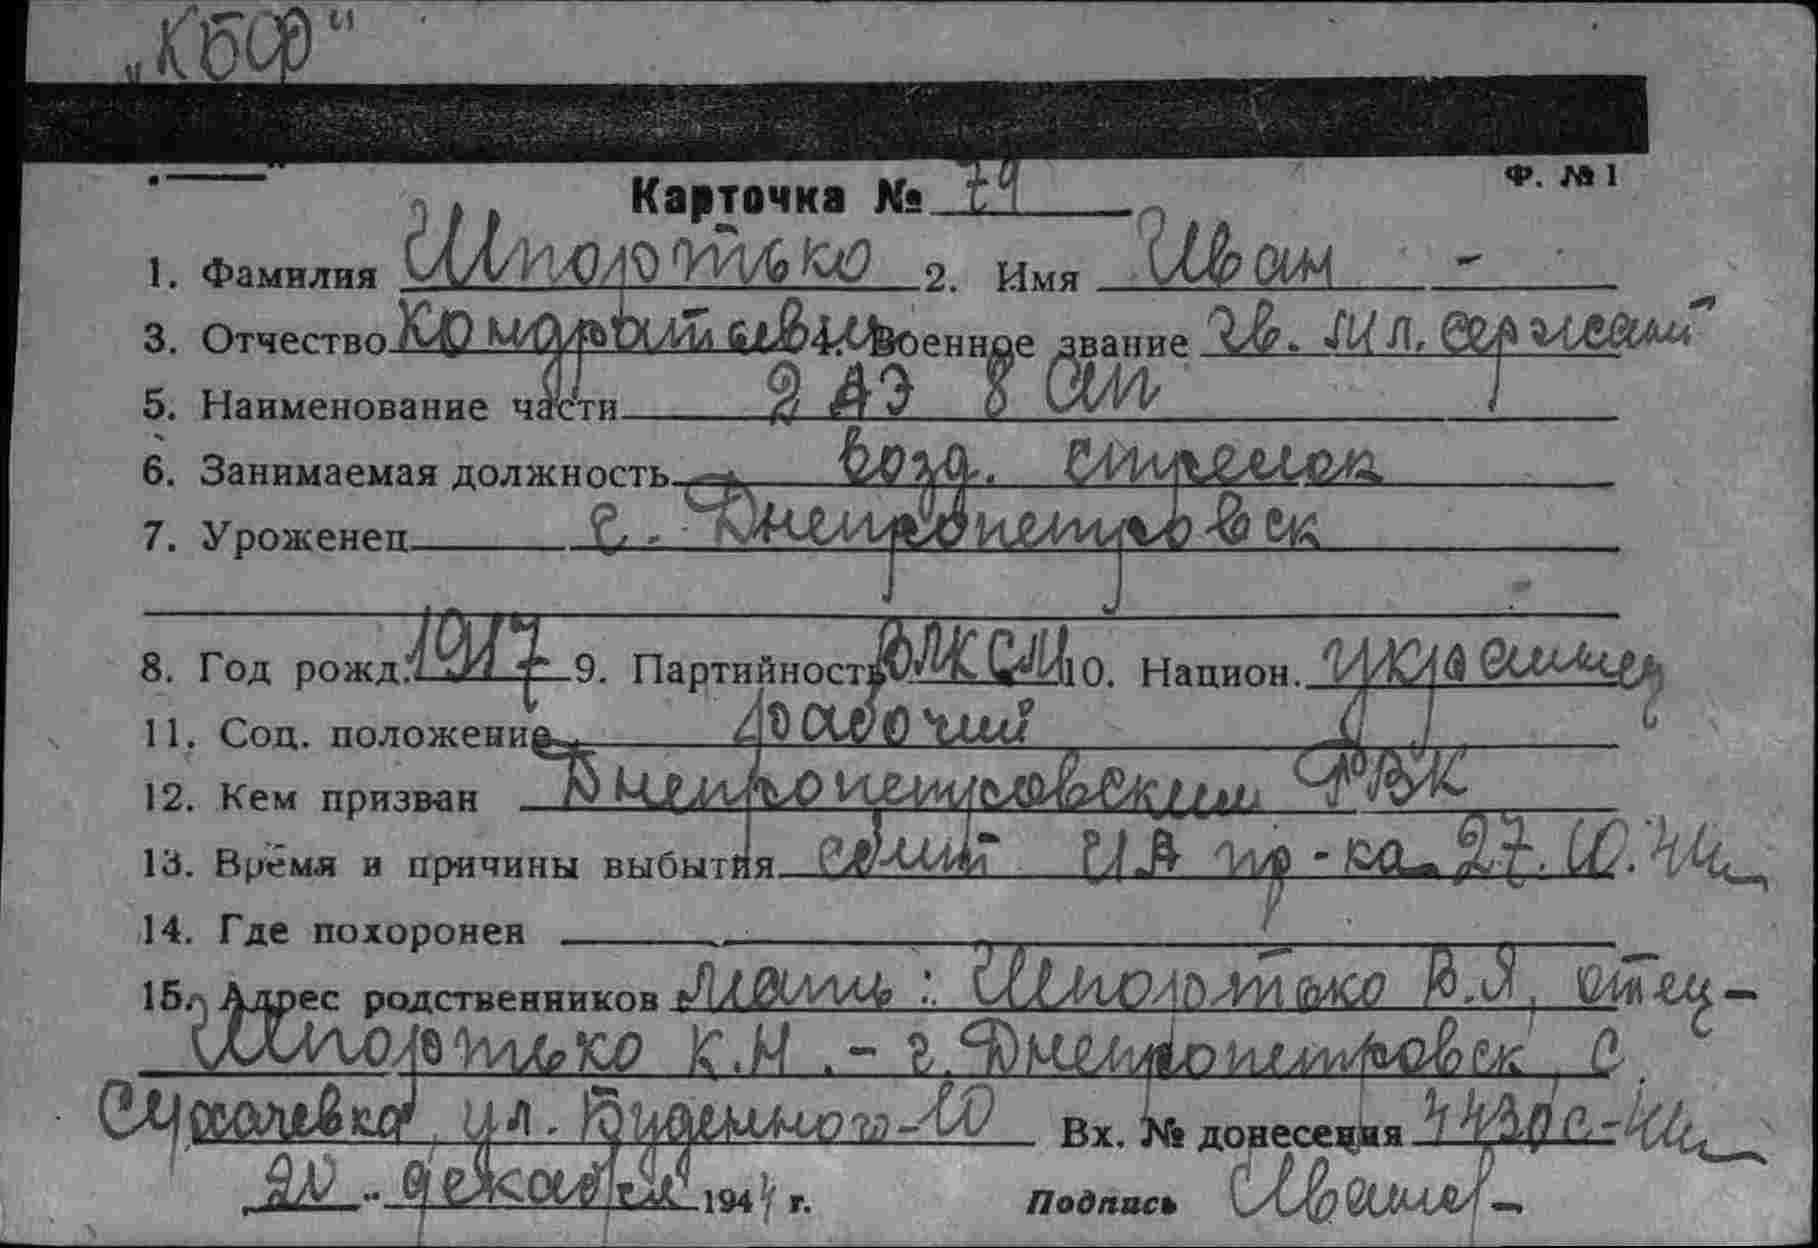 „КБФ"
Карточка № 79
Ф. № 1
1. Фамилия Шпортько 2. Имя Иван -
3. Отчество Кондратьевич 4. Военное звание Гв. мл. сержант
5. Наименование части 2 АЭ 8 ап
6. Занимаемая должность возд. стрелок
7. Уроженец г. Днепропетровск
8. Год рожд. 1917 9. Партийность ВЛКСМ 10. Национ. украинец
11. Соц. положение рабочий
12. Кем призван Днепропетровским РВК
13. Время и причины выбытия сбит ИА пр-ка 27.10.44
14. Где похоронен
15. Адрес родственников Мать: Шпортько В.Я, отец -
Шпортько К.Н. - г. Днепропетровск с.
Сухачевка, ул. Буденного-10 Вх. № донесения
20 .. декабря 1944 г. Подпись